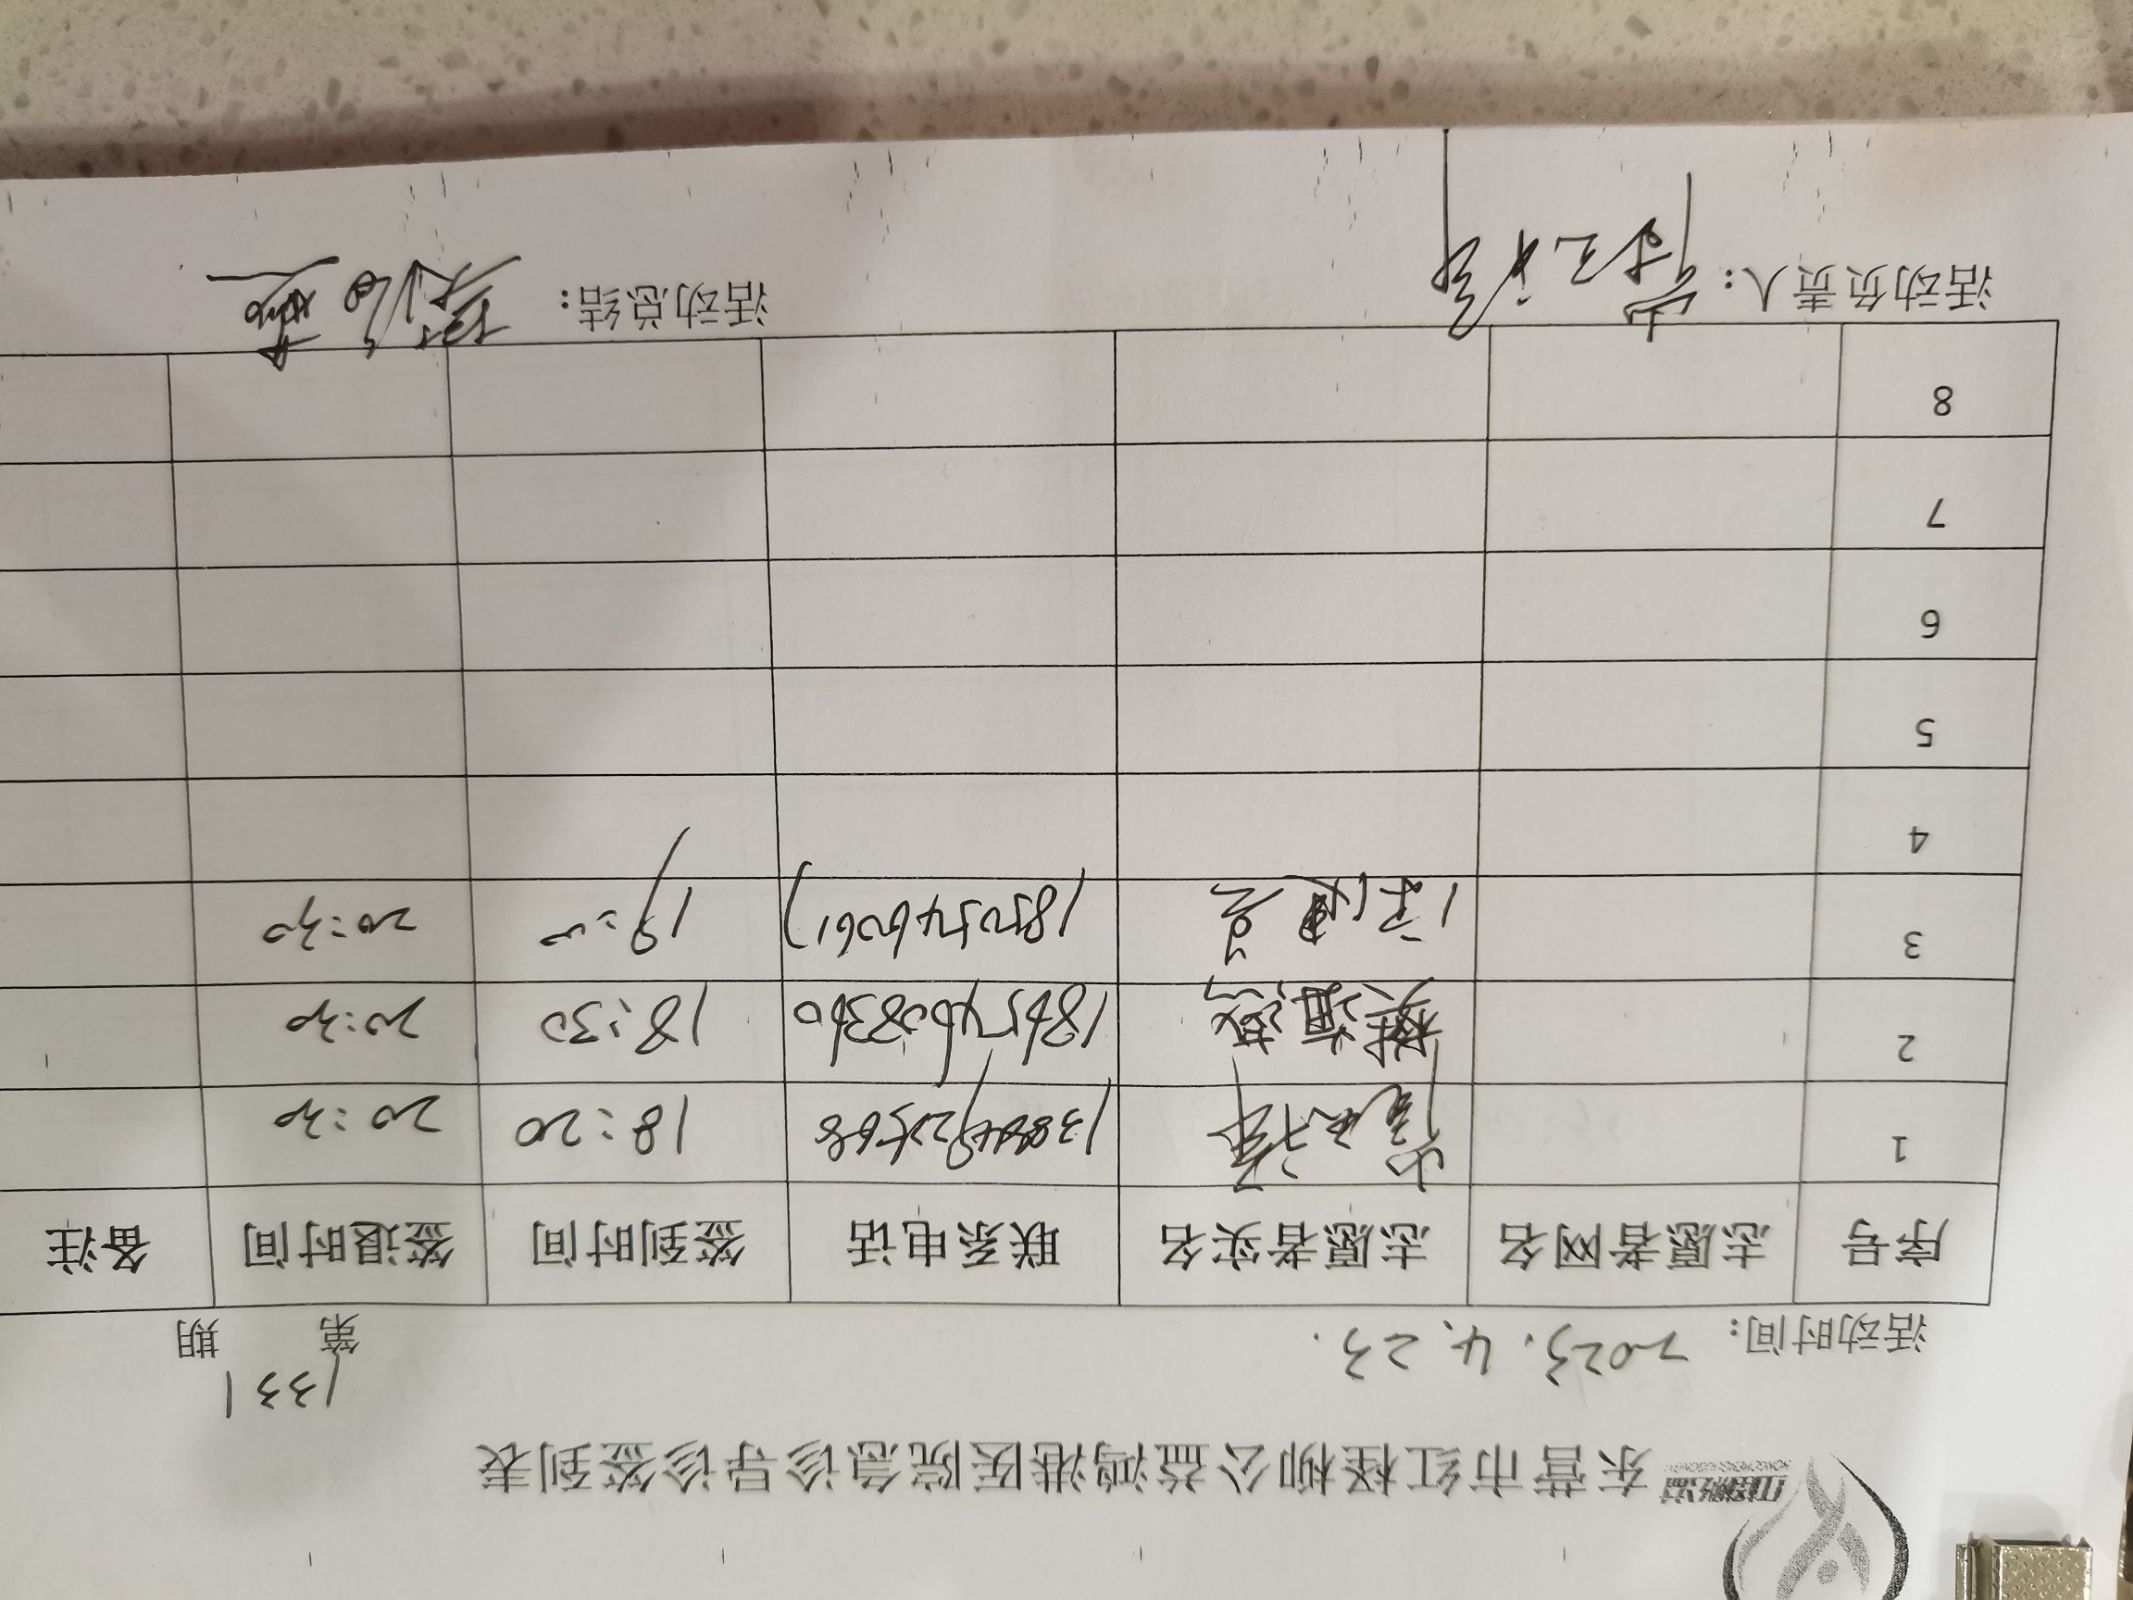 东营市红柽柳公益鸿港医院急诊导诊签到表
活动时间：2023.4.23. 第1331期
序号 志愿者网名 志愿者实名 联系电话 签到时间 签退时间 备注
1 18:20 20:30
2 18654608360 18:30 20:30
3 18505460617 19:00 20:30
4
5
6
7
8
活动负责人： 活动总结：